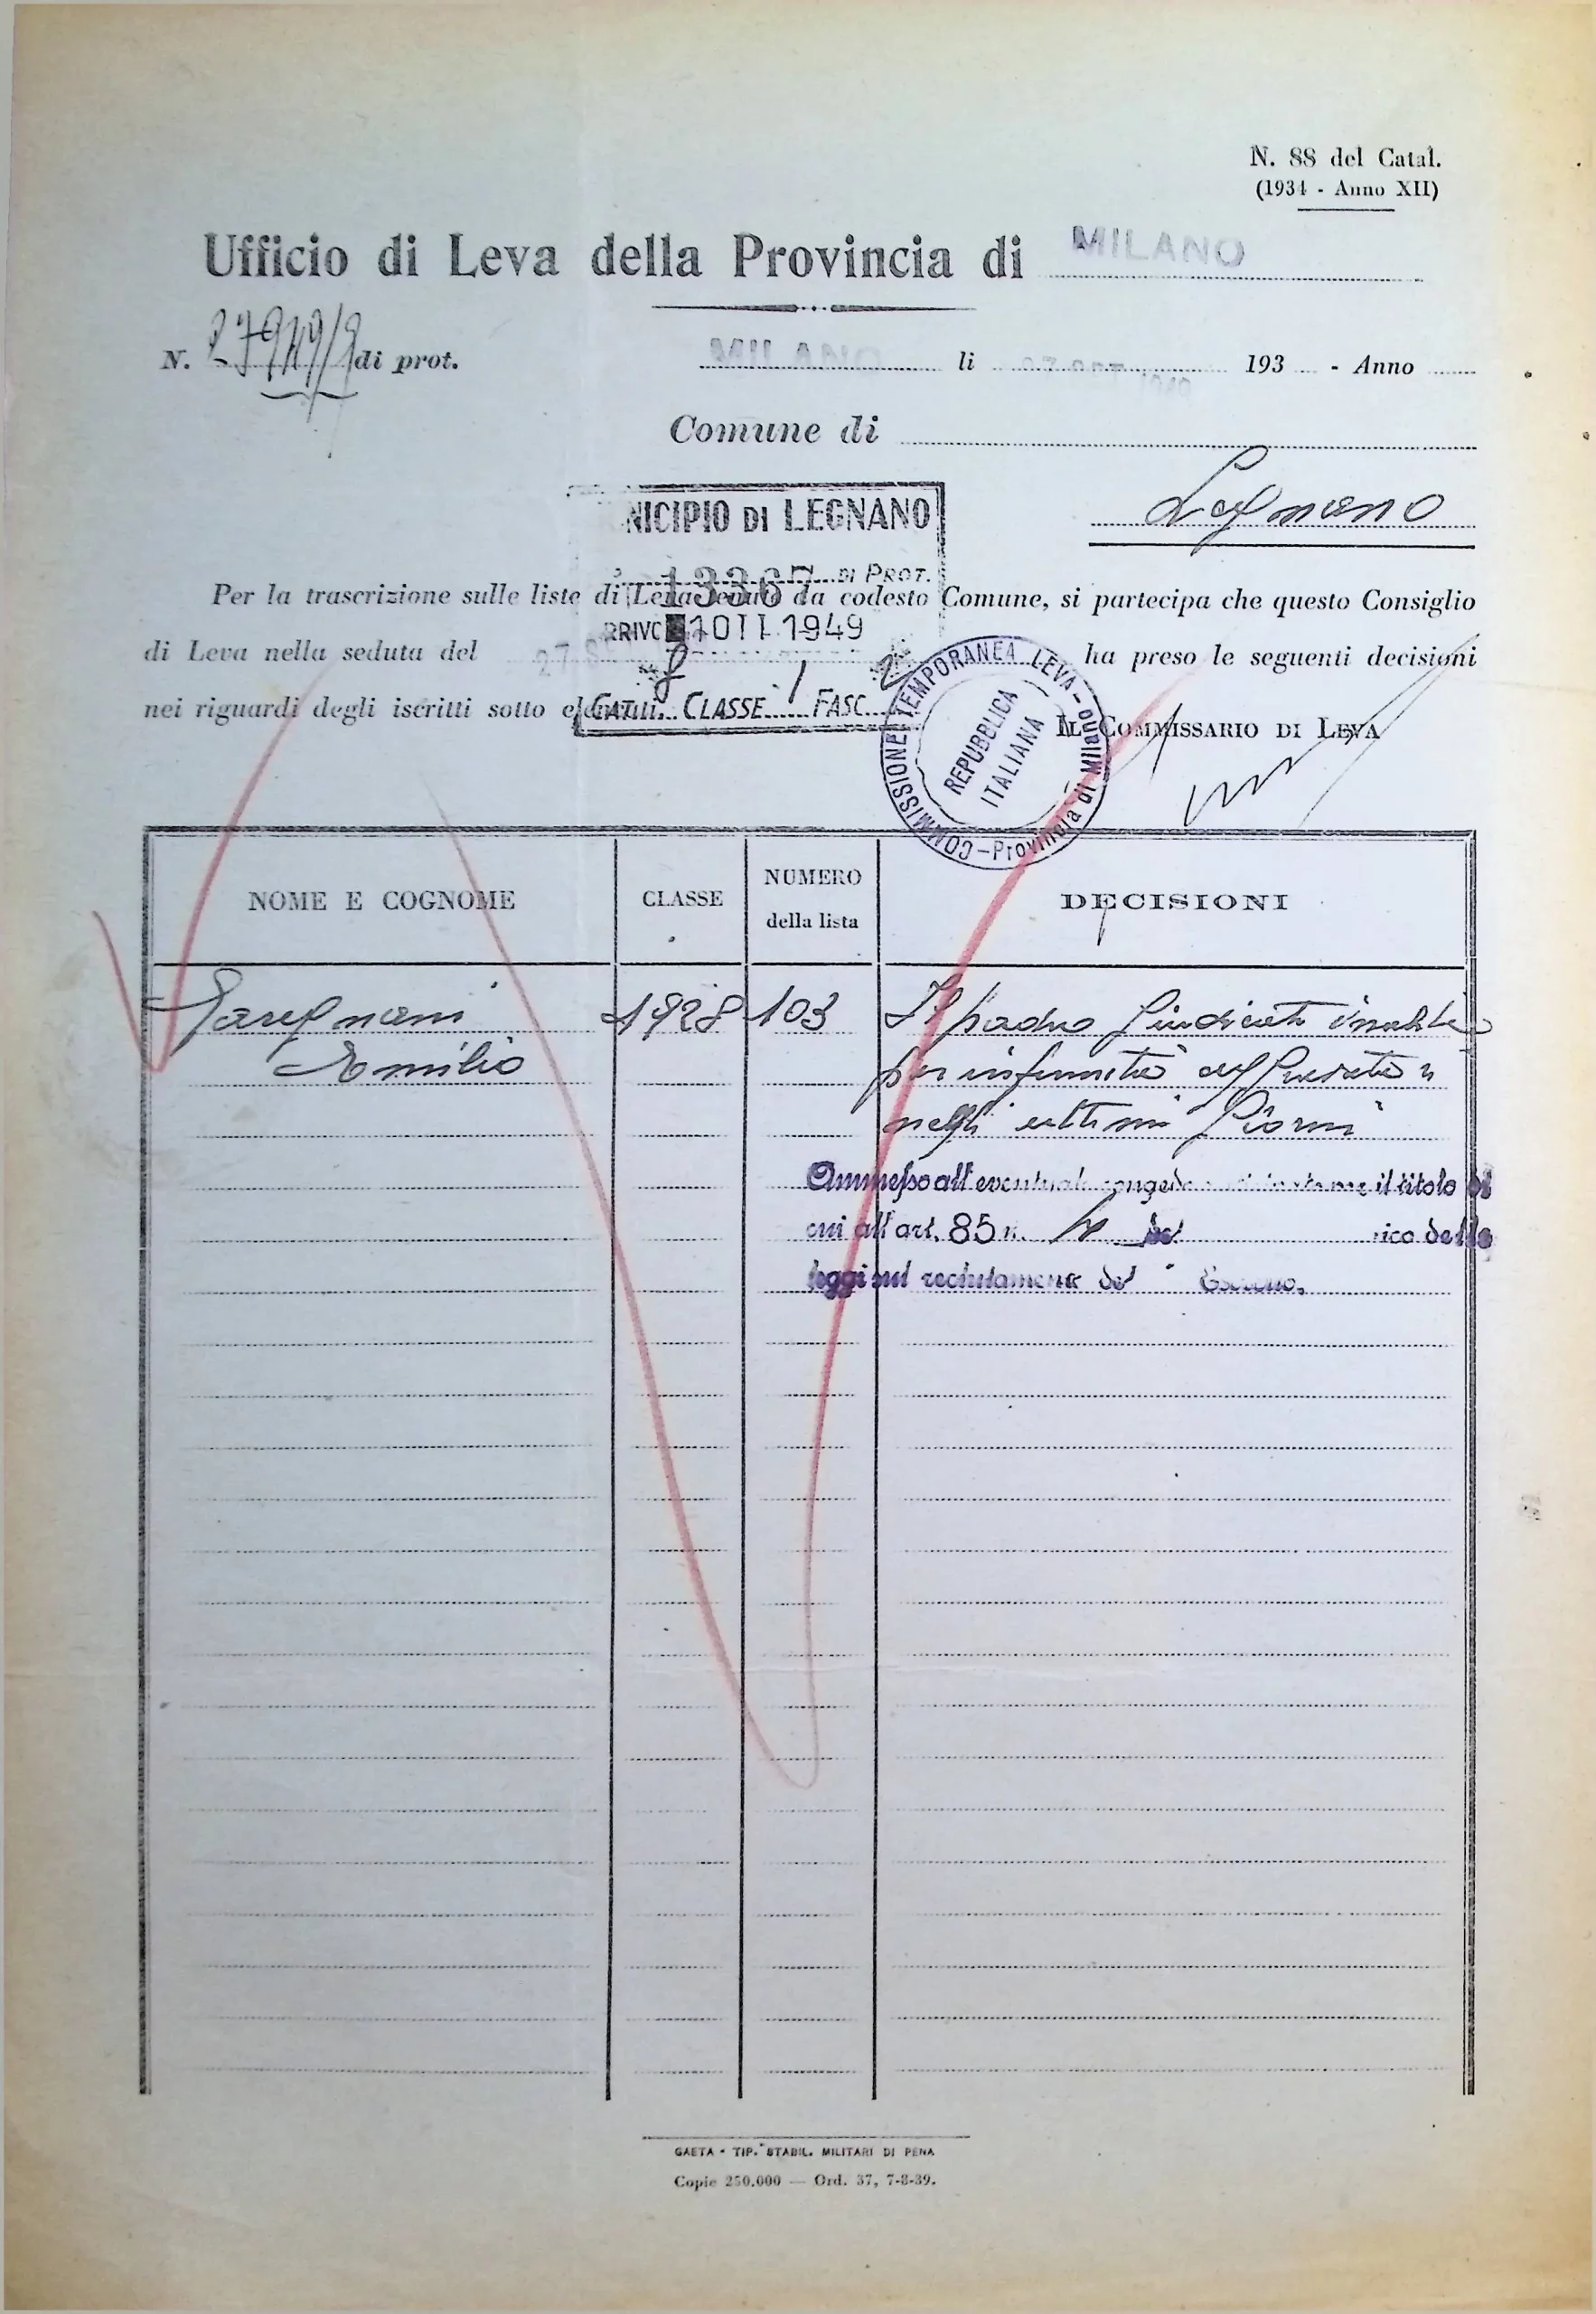 N. 88 del Catal.
(1934 - Anno XII)
Ufficio di Leva della Provincia di MILANO
N. di prot. MILANO li 193 - Anno
Comune di
Legnano
NICIPIO DI LEGNANO
13367 DI PROT.
Per la trascrizione sulle liste di Leva tenute da codesto Comune, si partecipa che questo Consiglio
RRIVO 1 OTT. 1949
di Leva nella seduta del 27 ha preso le seguenti decisioni
nei riguardi degli iscritti sotto elencati.
CAT. 8 CLASSE 1 FASC. 2
COMMISSIONE TEMPORANEA LEVA - Provincia di Milano
REPUBBLICA
ITALIANA
IL COMMISSARIO DI LEVA
NOME E COGNOME CLASSE NUMERO della lista DECISIONI
Garegnani 1928 103 Il padre giudicato inabile
Emilio per infermità aggravatasi
negli ultimi giorni
Ammesso all'eventuale congedo il titolo di
cui all'art. 85 n. delle
leggi sul reclutamento del Esercito.
GAETA - TIP. STABIL. MILITARI DI PENA
Copie 250.000 — Ord. 37, 7-8-39.